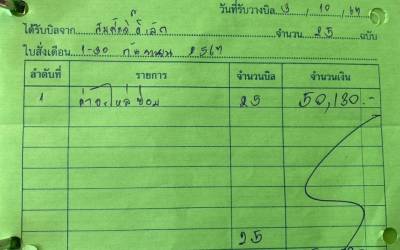 วันที่รับวางบิล 3 / 10 / 67
ได้รับบิลจาก จำนวน 25 ฉบับ
ใบสั่งเดือน 1-30 กันยายน 2567
ลำดับที่ รายการ จำนวนบิล จำนวนเงิน
1 ค่าอะไหล่ซ่อม 25 50,130.-
25